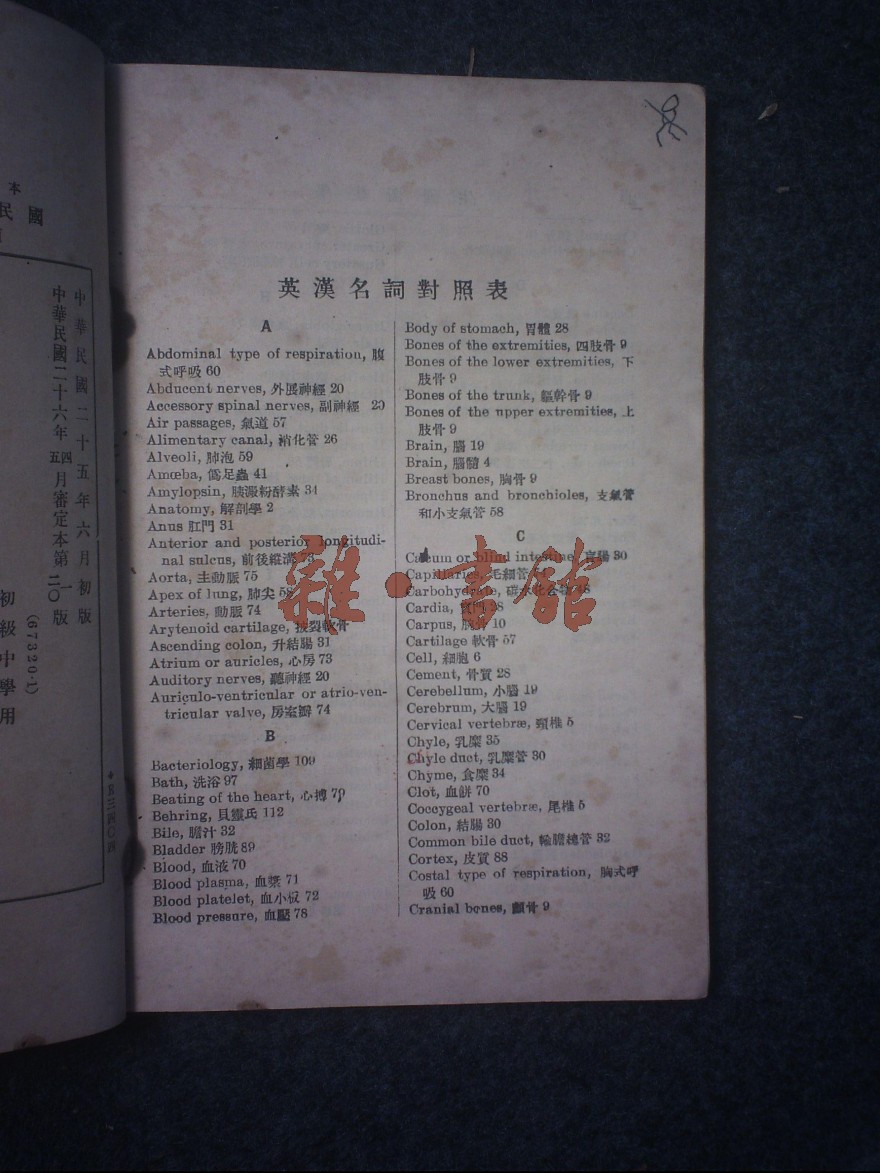 英漢名詞對照表
A
Abdominal type of respiration, 腹
式呼吸 60
Abducent nerves, 外展神經 20
Accessory spinal nerves, 副神經 20
Air passages, 氣道 57
Alimentary canal, 消化管 26
Alveoli, 肺泡 59
Amœba, 變足蟲 41
Amylopsin, 胰澱粉酵素 34
Anatomy, 解剖學 2
Anus 肛門 31
Anterior and posterior longitudi-
nal sulcus, 前後縱溝 73
Aorta, 主動脈 75
Apex of lung, 肺尖 58
Arteries, 動脈 74
Arytenoid cartilage, 披裂軟骨
Ascending colon, 升結腸 31
Atrium or auricles, 心房 73
Auditory nerves, 聽神經 20
Auriculo-ventricular or atrio-ven-
tricular valve, 房室瓣 74
B
Bacteriology, 細菌學 109
Bath, 洗浴 97
Beating of the heart, 心搏 79
Behring, 貝靈氏 112
Bile, 膽汁 32
Bladder 膀胱 89
Blood, 血液 70
Blood plasma, 血漿 71
Blood platelet, 血小板 72
Blood pressure, 血壓 78
Body of stomach, 胃體 28
Bones of the extremities, 四肢骨 9
Bones of the lower extremities, 下
肢骨 9
Bones of the trunk, 軀幹骨 9
Bones of the upper extremities, 上
肢骨 9
Brain, 腦 19
Brain, 腦髓 4
Breast bones, 胸骨 9
Bronchus and bronchioles, 支氣管
和小支氣管 58
C
Cæcum or blind intestine, 盲腸 30
Capillaries, 毛細管
Carbohydrate, 碳水化合物 48
Cardia, 賁門 28
Carpus, 腕骨 10
Cartilage 軟骨 57
Cell, 細胞 6
Cement, 骨質 28
Cerebellum, 小腦 19
Cerebrum, 大腦 19
Cervical vertebræ, 頸椎 5
Chyle, 乳糜 35
Chyle duct, 乳糜管 30
Chyme, 食糜 34
Clot, 血餅 70
Coccygeal vertebræ, 尾椎 5
Colon, 結腸 30
Common bile duct, 輸膽總管 32
Cortex, 皮質 88
Costal type of respiration, 胸式呼
吸 60
Cranial bones, 顱骨 9
雜·書館
本
民國
中華民國二十五年六月初版
中華民國二十六年五四月審定本第二一〇版
(67320·1)
初級中學用